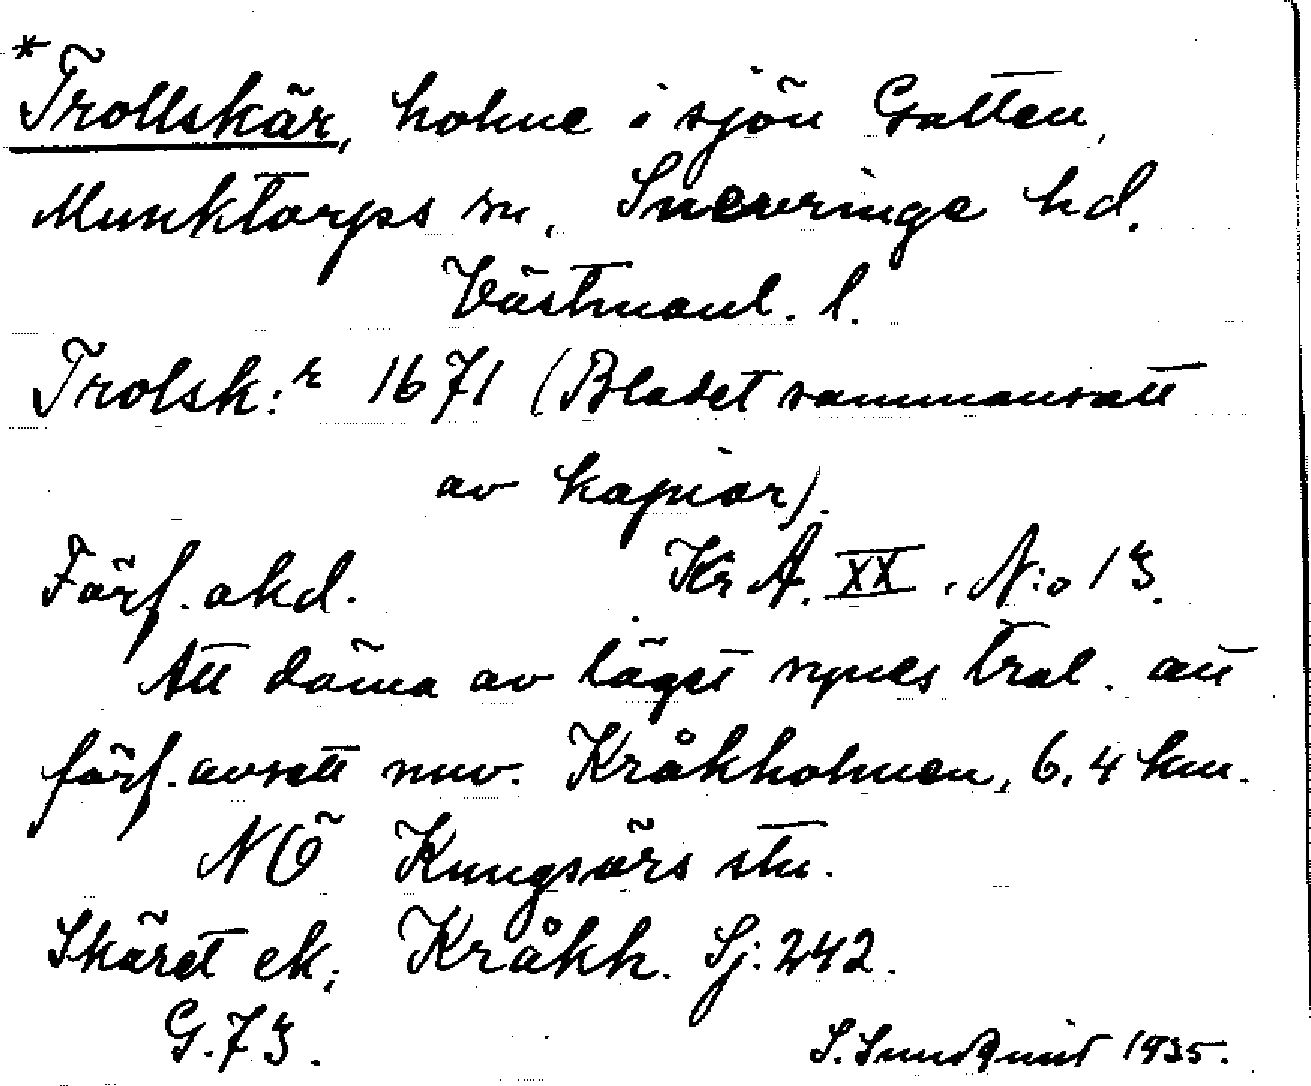 *Trollskär, holme i sjön Galten,
Munktorps sn, Snevringe hd.
Västmanl. l.
Trolsk:r 1671 (Bladet sammansatt
av kopior).
Förf. okd. Kr A. XX. N:o 13.
Att döma av läget synes trol. att
förf. avsett nuv. Kråkholmen, 6,4 km.
NÖ Kungsörs stn.
Skäret ek, Kråkh. Sj: 242.
G. 73.
S. Sundquist 1935.